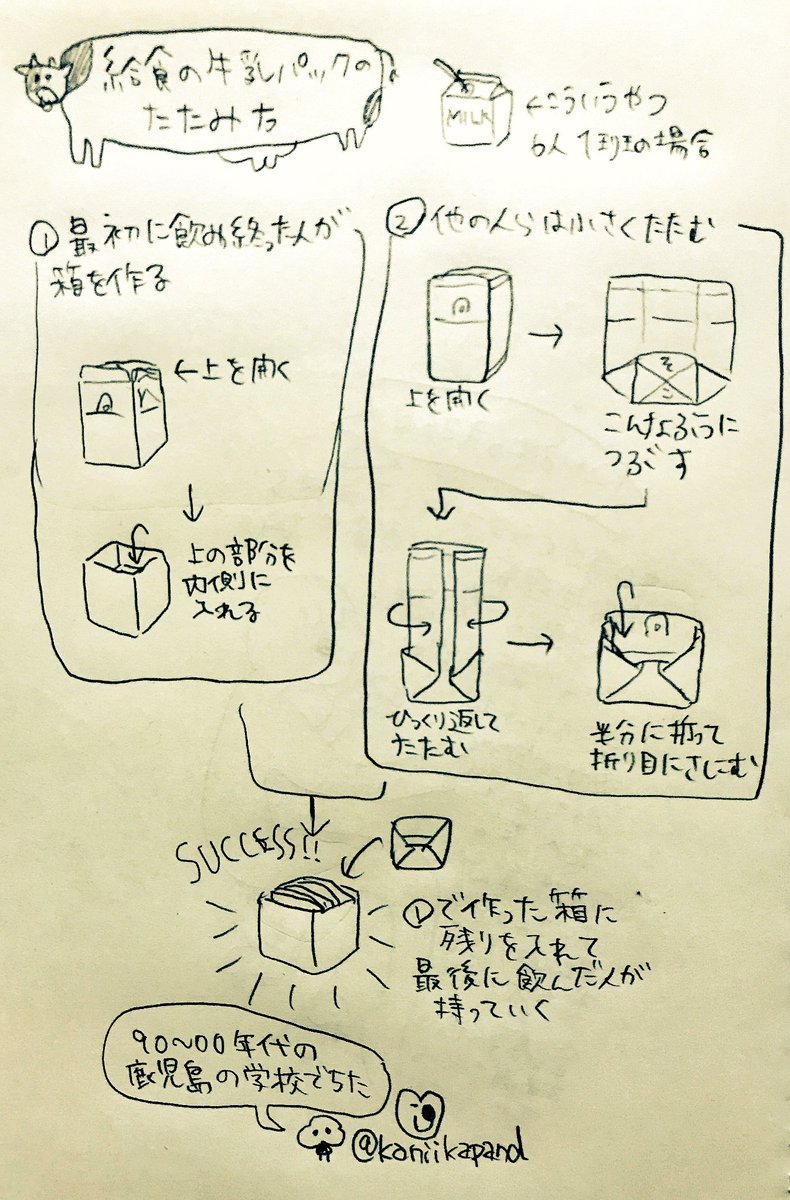 給食の牛乳パックの
たたみち
MILK
←こういうやつ
6人1班の場合
① 最初に飲み終った人が
箱を作る
←上を開く
上の部分を
内側に
入れる
② 他の人らは小さくたたむ
上を開く
そこ
こんなふうに
つぶす
ひっくり返して
たたむ
半分に折って
折り目にさしこむ
SUCCESS!!
①で作った箱に
残りを入れて
最後に飲んだ人が
持っていく
90~00年代の
鹿児島の学校でちた
@koniikapand